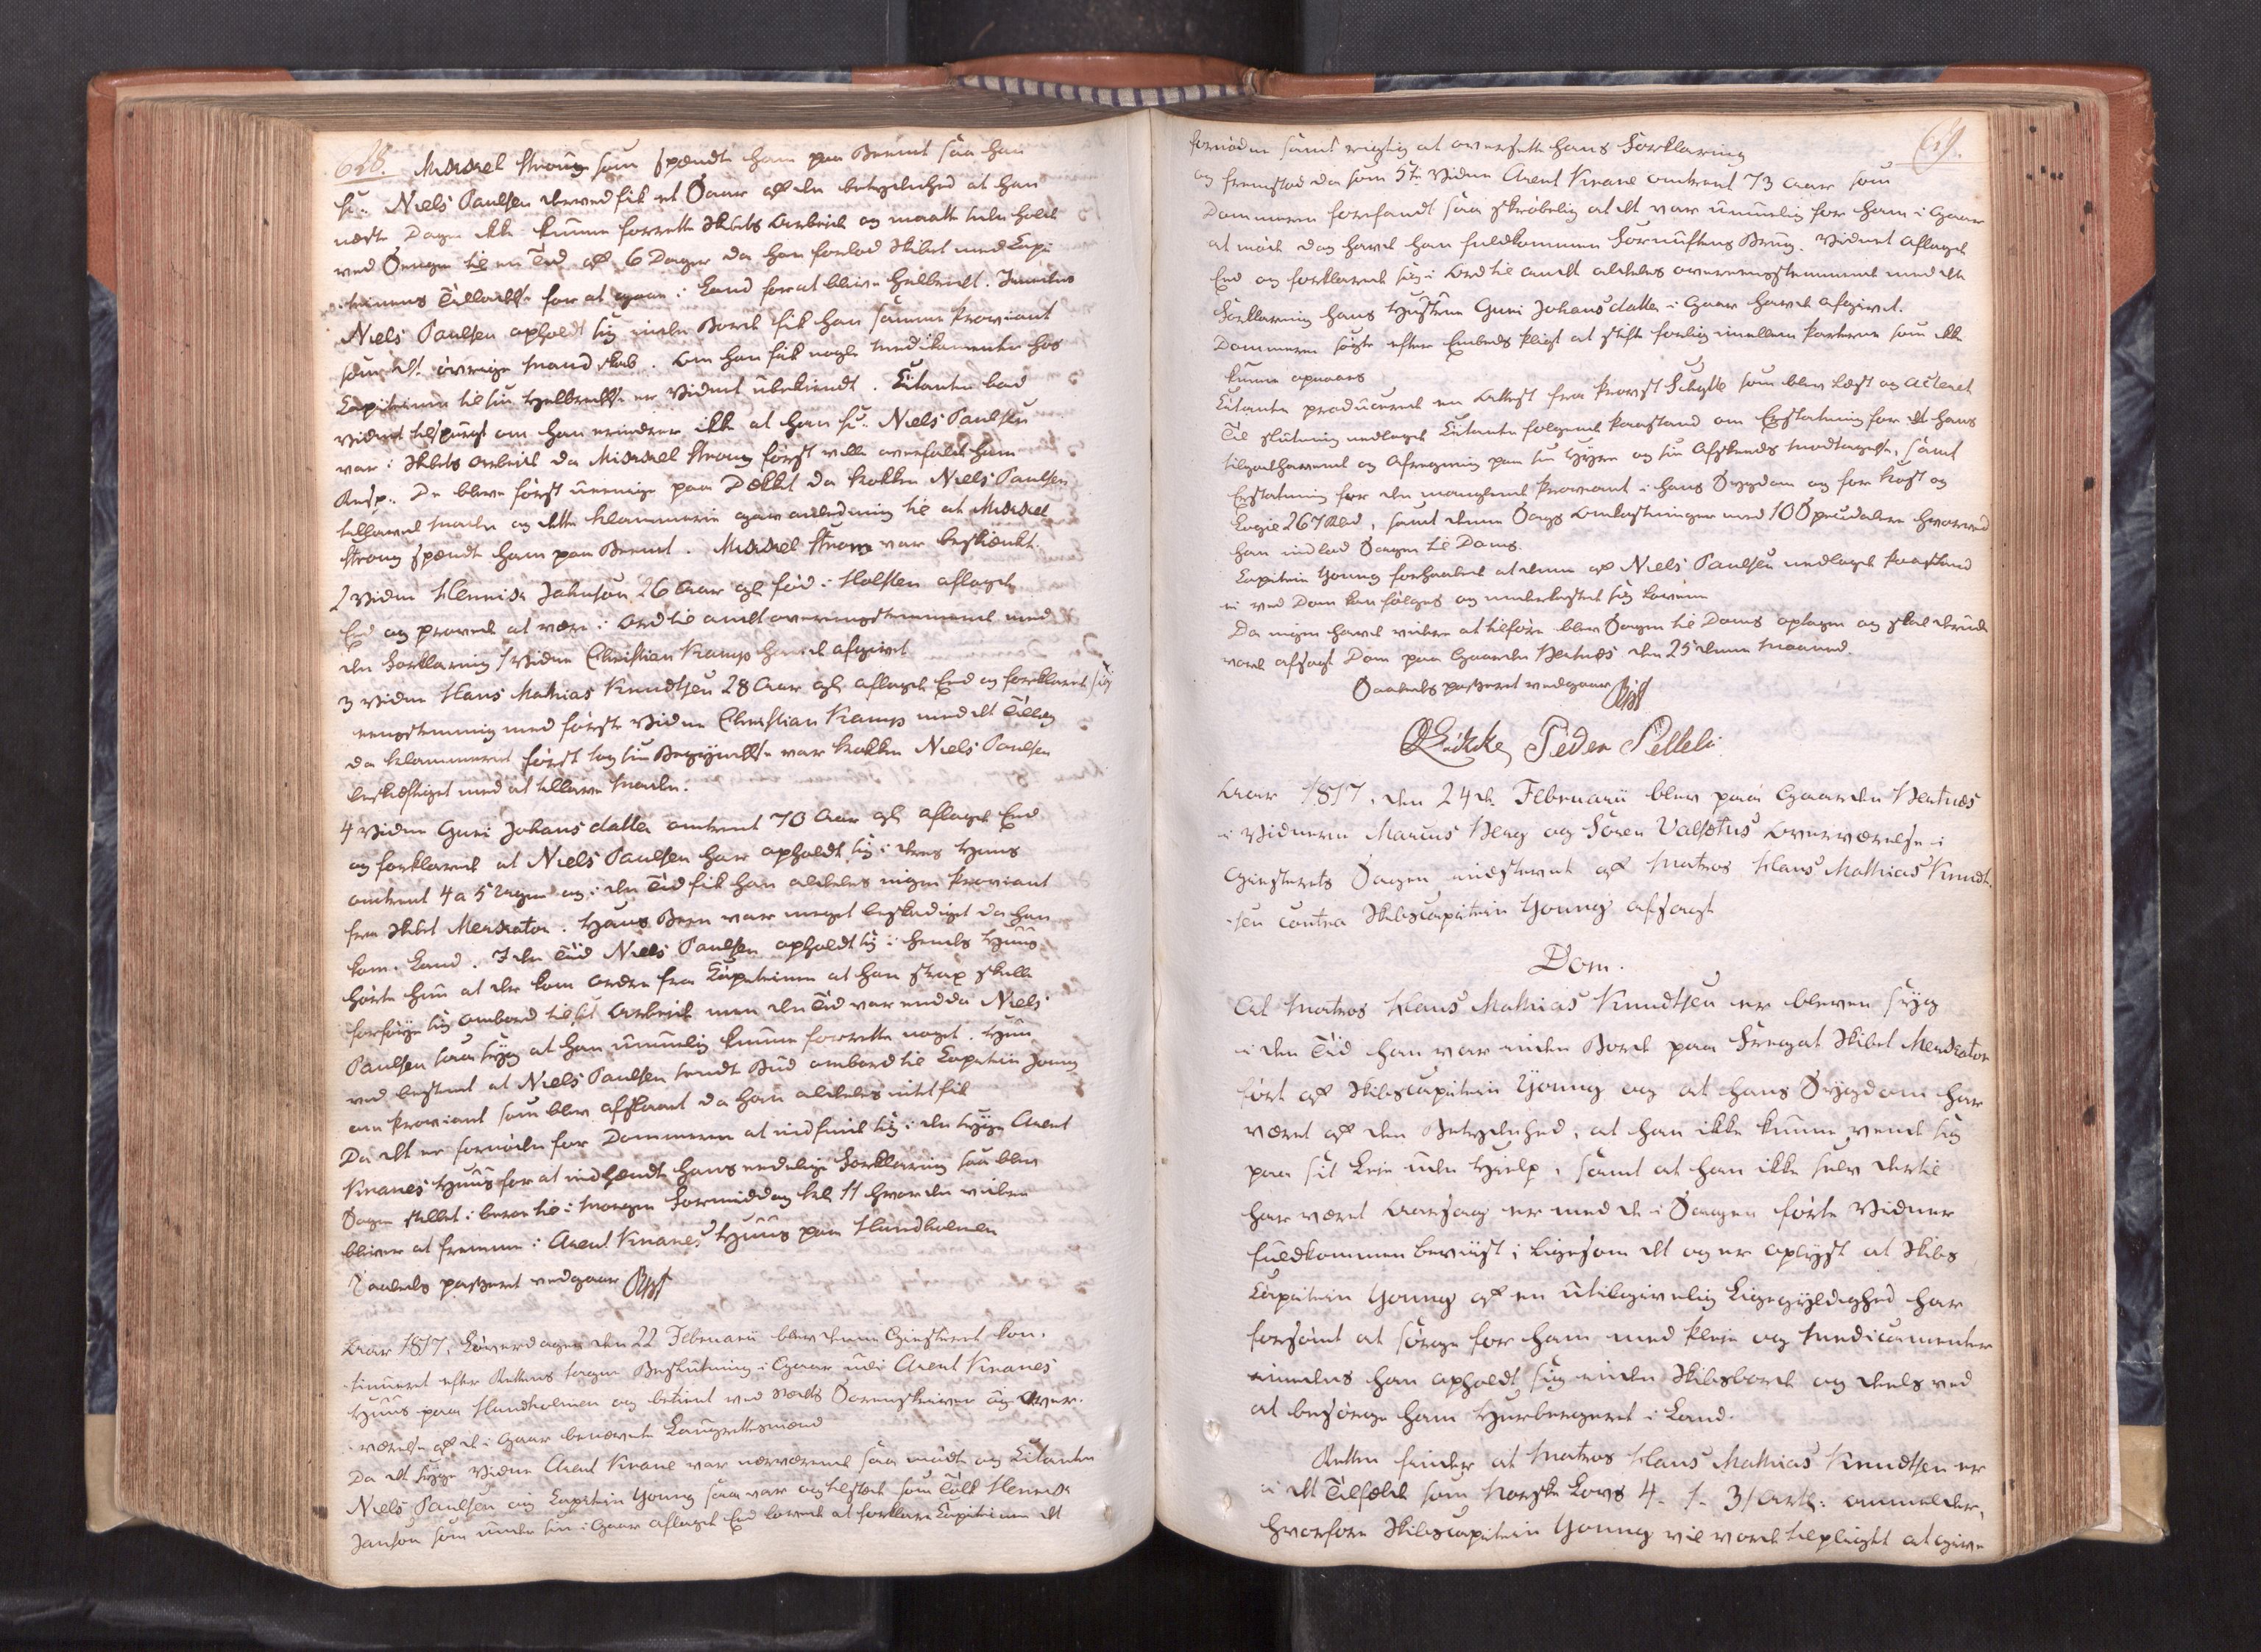 618.
Michael Strong som spændte ham paa Beenet saa han
sc: Niels Paulsen derved fik et Saar af den betydenhed at han
næste Dagen ikke kunne forrette Skibets Arbeide og maatte siden holde
ved Sengen til en Tid af 6 Dager da han forlod Skibet med Capi
teinens Tilladelse for at gaae i Land for at blive helbredet. Imedens
Niels Paulsen opholdt sig inden Borde fik han samme Proviant
som det øvrige Mandskab. Om han fik nogle Medikamenter hos
Capiteinen til sin Helbredelse er Vidnet ubekiendt. Citanten bad
Vidnet tilspurgt om han erindrer ikke at han sc: Niels Paulsen
var i Skibets Arbeide da Michael Strong først ville overfalde ham
Resp: De bleve først uenige paa Dækket da Kokken Niels Paulsen
tillavede Maden og dette Klammerie gav anledning til at Michael
Strong spændte ham paa Beenet. Michael Strong var beskiænket.
2 Vidne Hennich Johnson 26 Aar gl fød i Holsten aflagde
Eed og provede at være i Ord til andet overeensstemmende med
den Forklaring 1 Vidne Christian Kamp havde afgivet
3 Vidne Hans Mathias Knudtsen 28 Aar gl: aflagde Eed og forklarede sig
eenstemmig med første Vidne Christian Kamp med det Tillæg
da Klammeriet først tog sin Begyndelse var Kokken Niels Paulsen
beskiæftiget med at tillave Maden.
4 Vidne Guri Johansdatter omtrent 70 Aar gl: aflagde Eed
og forklarede at Niels Paulsen har opholdt sig i deres Huus
omtrent 4 a 5 Uger og i den Tid fik han aldeles ingen Proviant
fra Skibet Mercator. Hans Been var meget beskadiget da han
kom i Land. I den Tid Niels Paulsen opholdt sig i hendes Huus
hørte hun at der kom Ordre fra Capiteinen at han strax skulle
forføye sig ombord til sit Arbeide men den Tid var endda Niels
Paulsen saa syg at han umuelig kunne forrette noget. Hun
ved bestemt at Niels Paulsen sendte Bud ombord til Capitein Joung
om Proviant som blev afslaaet da han aldeles intet fik
Da det er fornøden for Dommeren at indfinde sig i den syge Arent
Knanes Huus for at indhændte hans eedelige Forklaring saa blev
Sagen stillet i bero til i Morgen Formiddag kl 11 hvor den videre
bliver at fremme i Arent Knanes Huus paa Hundholmen
Saaledes passeret vedgaar
Aar 1817, Løverdagen den 22 Februarii blev denne Giesteret kon-
tinueret efter Rettens tagne Beslutning i Gaar udi Arent Knanes
Huus paa Hundholmen og betient ved Sorenskriver og Over-
værelse af de i Gaar benævnte Laugrettesmænd
Da det syge Vidne Arent Knane var nærværende saa mødte og Citanten
Niels Paulsen og Capitein Young saa var og tilstæde som Tolk Hennich
Janson som under sin i Gaar aflagde Eed lovede at forklare Capiteinen det
619.
fornødne samt rigtig at oversette hans Forklaring
og fremstod da som 5te Vidne Arent Knane omtrent 73 Aar som
Dommeren forefandt saa skrøbelig at det var umuelig for ham i Gaar
at møde dog havde han fuldkommen Fornuftens Brug. Vidnet aflagde
Eed og forklarede sig i Ord til andet aldeles overeensstemmende med den
Forklaring hans Hustrue Guri Johansdatter i Gaar havde afgivet.
Dommeren søgte efter Embeds Pligt at stifte Forlig imellem Parterne som ikke
kunne opnaaes
Citanten producerede en Attest fra Provst Schytte som blev læst og acteret
Til slutning nedlagde Citanten følgende Paastand om Erstatning for det hans
tilgodehavende og Afregning paa sin Hyre og sin Afskeeds Modtagelse, samt
Erstatning for den manglende Proviant i hans Sygdom og for Kost og
Logie 267 Rbd, samt denne Sags Omkostninger med 100 Speciedaler hvorved
han indlod Sagen til Doms.
Capitein Young forhaabede at denne af Niels Paulsen nedlagde Paastand
ei ved Dom kan følges og underkastede sig Lovene
Da ingen havde videre at tilføre blev Sagen til Doms optagen og skal derude
vorde afsagt Dom paa Gaarden Bertnes den 25 denne Maaned.
Saaledes passeret vedgaar
Peder Pettels:
Aar 1817, den 24de Februarii blev paa Gaarden Bertnes
i Vidnerne Marcus Berg og Søren Valsetus Overværelse i
Giesterets Sagen indstevnt af Matros Hans Mathias Knudt-
sen contra Skibscapitein Young afsagt
Dom.
At Matros Hans Mathias Knudtsen er bleven syg
i den Tid han var inden Borde paa Fregat Skibet Mercator
ført af Skibscapitein Young og at hans Sygdom har
været af den Betydenhed, at han ikke kunne vende sig
paa sit Leie uden Hielp, samt at han ikke selv dertil
har været Aarsag er med de i Sagen førte Vidner
fuldkommen beviist; ligesom det og er oplyst at Skibs
Capitein Young af en utilgivelig Ligegyldighed har
forsømt at sørge for ham med Pleie og Medicamenter
imedens han opholdt sig inden Skibsborde og deels ved
at besørge ham Herbergeret i Land.
Retten finder at Matros Hans Mathias Knudtsen er
i det Tilfælde som Norske Lovs 4- 1- 31 Artl: ommelder,
hvorfore Skibscapitein Young vil vorde tilpligtet at give